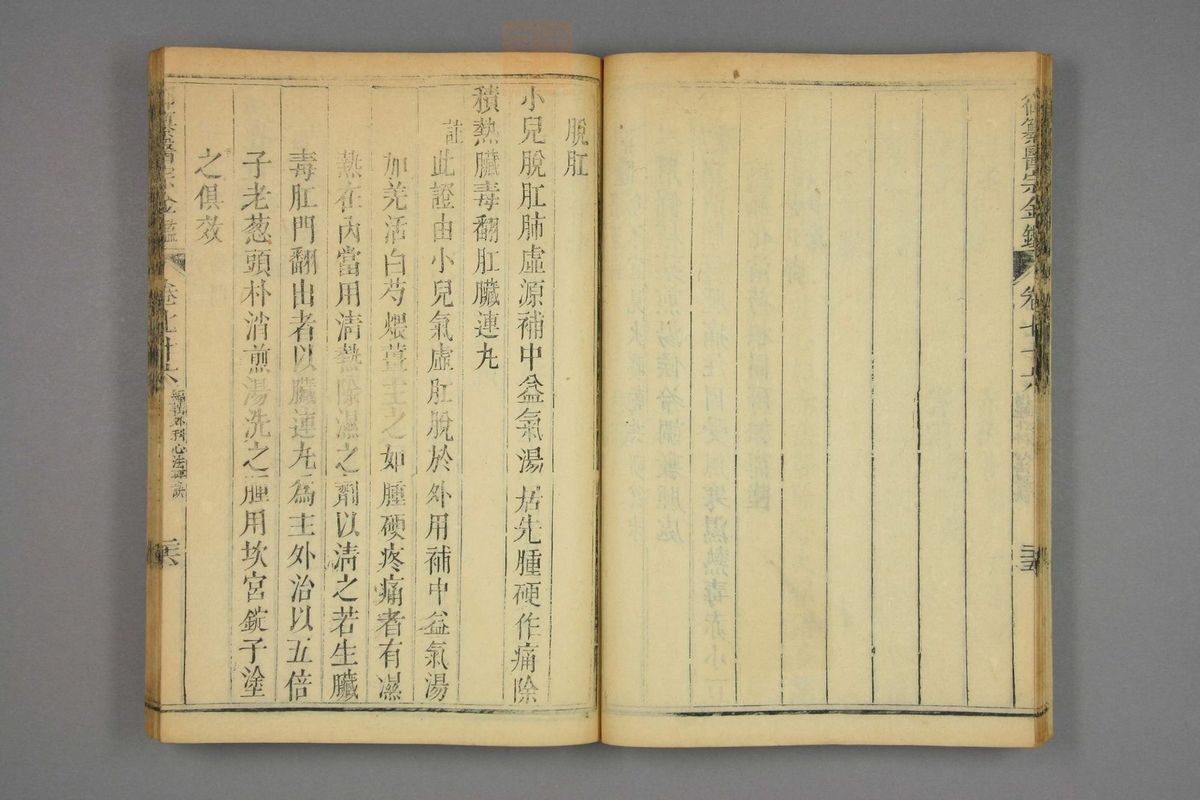 御纂醫宗金鑑 卷七十六 三五
脫肛
小兒脫肛肺虛源補中益氣湯居先腫硬作痛除
積熱臟毒翻肛臟連丸
註此證由小兒氣虛肛脫於外用補中益氣湯
加羌活白芍煨薑主之如腫硬疼痛者有濕
熱在內當用清熱除濕之劑以清之若生臟
毒肛門翻出者以臟連丸為主外治以五倍
子老葱頭朴消煎湯洗之腫用坎宮錠子塗
之俱效
御纂醫宗金鑑 卷七十六 編輯外科心法要訣 三六